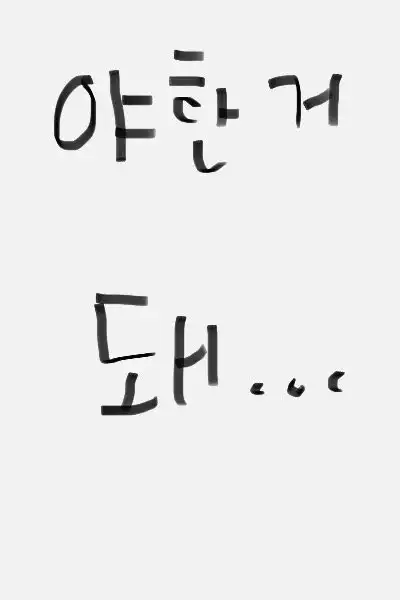 야한 거
돼...